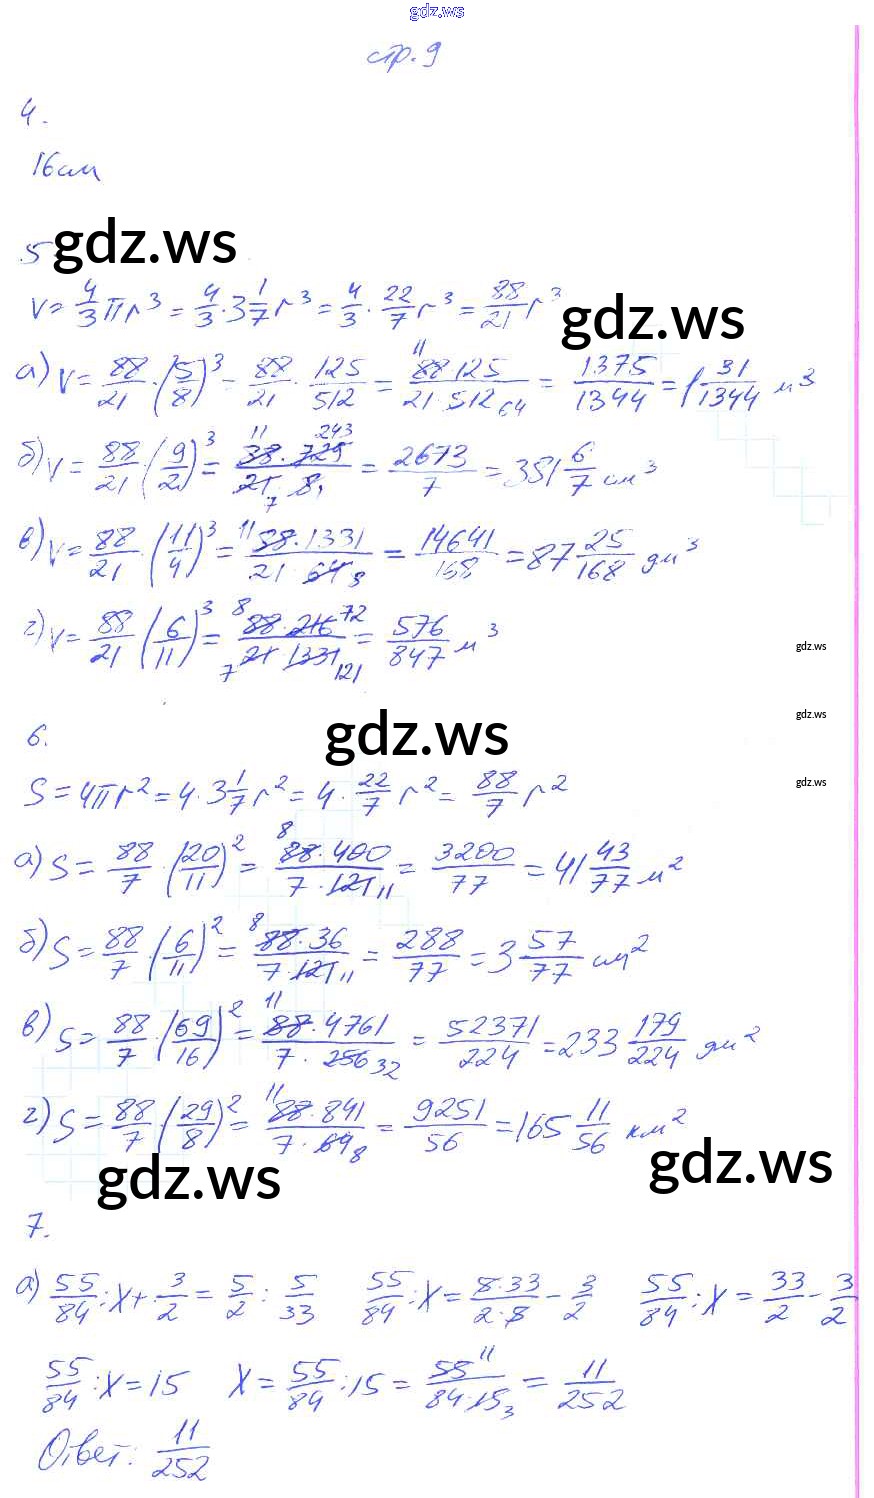 gdz.ws
стр. 9
4.
16см
5 gdz.ws
V = 4/3 πr³ = 4/3 · 3 1/7 r³ = 4/3 · 22/7 r³ = 88/21 r³ gdz.ws
а) V = 88/21 · (5/8)³ = 88/21 · 125/512 = 11 88·125 / 21·512 64 = 1375/1344 = 1 31/1344 м³
б) V = 88/21 · (9/2)³ = 11 243 88·729 / 21 7 · 8 1 = 2673/7 = 381 6/7 см³
в) V = 88/21 · (11/4)³ = 11 88·1331 / 21·64 8 = 14641/168 = 87 25/168 дм³
г) V = 88/21 · (6/11)³ = 8 88·216 72 / 7 21·1331 121 = 576/847 м³
gdz.ws
gdz.ws
6. gdz.ws
gdz.ws
S = 4πr² = 4 · 3 1/7 r² = 4 · 22/7 r² = 88/7 r²
а) S = 88/7 · (20/11)² = 8 88·400 / 7·121 11 = 3200/77 = 41 43/77 м²
б) S = 88/7 · (6/11)² = 8 88·36 / 7·121 11 = 288/77 = 3 57/77 см²
в) S = 88/7 · (69/16)² = 11 88·4761 / 7·256 32 = 52371/224 = 233 179/224 дм²
г) S = 88/7 · (29/8)² = 11 88·841 / 7·64 8 = 9251/56 = 165 11/56 км²
gdz.ws gdz.ws
7.
а) 55/84 : X + 3/2 = 5/2 : 5/33 55/84 : X = 5·33 / 2·5 − 3/2 55/84 : X = 33/2 − 3/2
55/84 : X = 15 X = 55/84 : 15 = 55 11 / 84·15 3 = 11/252
Ответ: 11/252